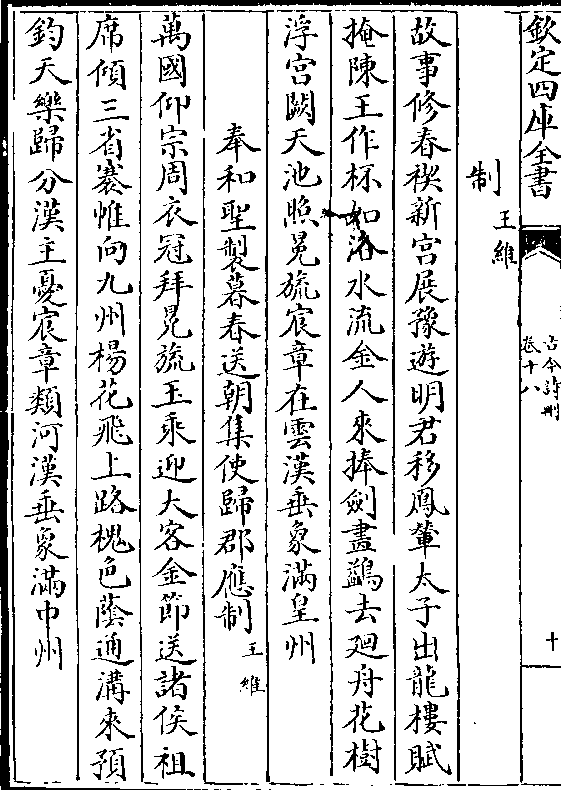 欽定四庫全書
古今詩刪
卷十八
十
制
王維
故事修春禊新宮展豫遊明君移鳳輦太子出龍樓賦
掩陳王作杯如洛水流金人來捧劍畫鷁去廻舟花樹
浮宮闕天池照冕旒宸章在雲漢垂象滿皇州
奉和聖製暮春送朝集使歸郡應制
王維
萬國仰宗周衣冠拜冕旒玉乘迎大客金節送諸侯祖
席傾三省褰帷向九州楊花飛上路槐色蔭通溝來預
鈞天樂歸分漢主憂宸章類河漢垂象滿中州